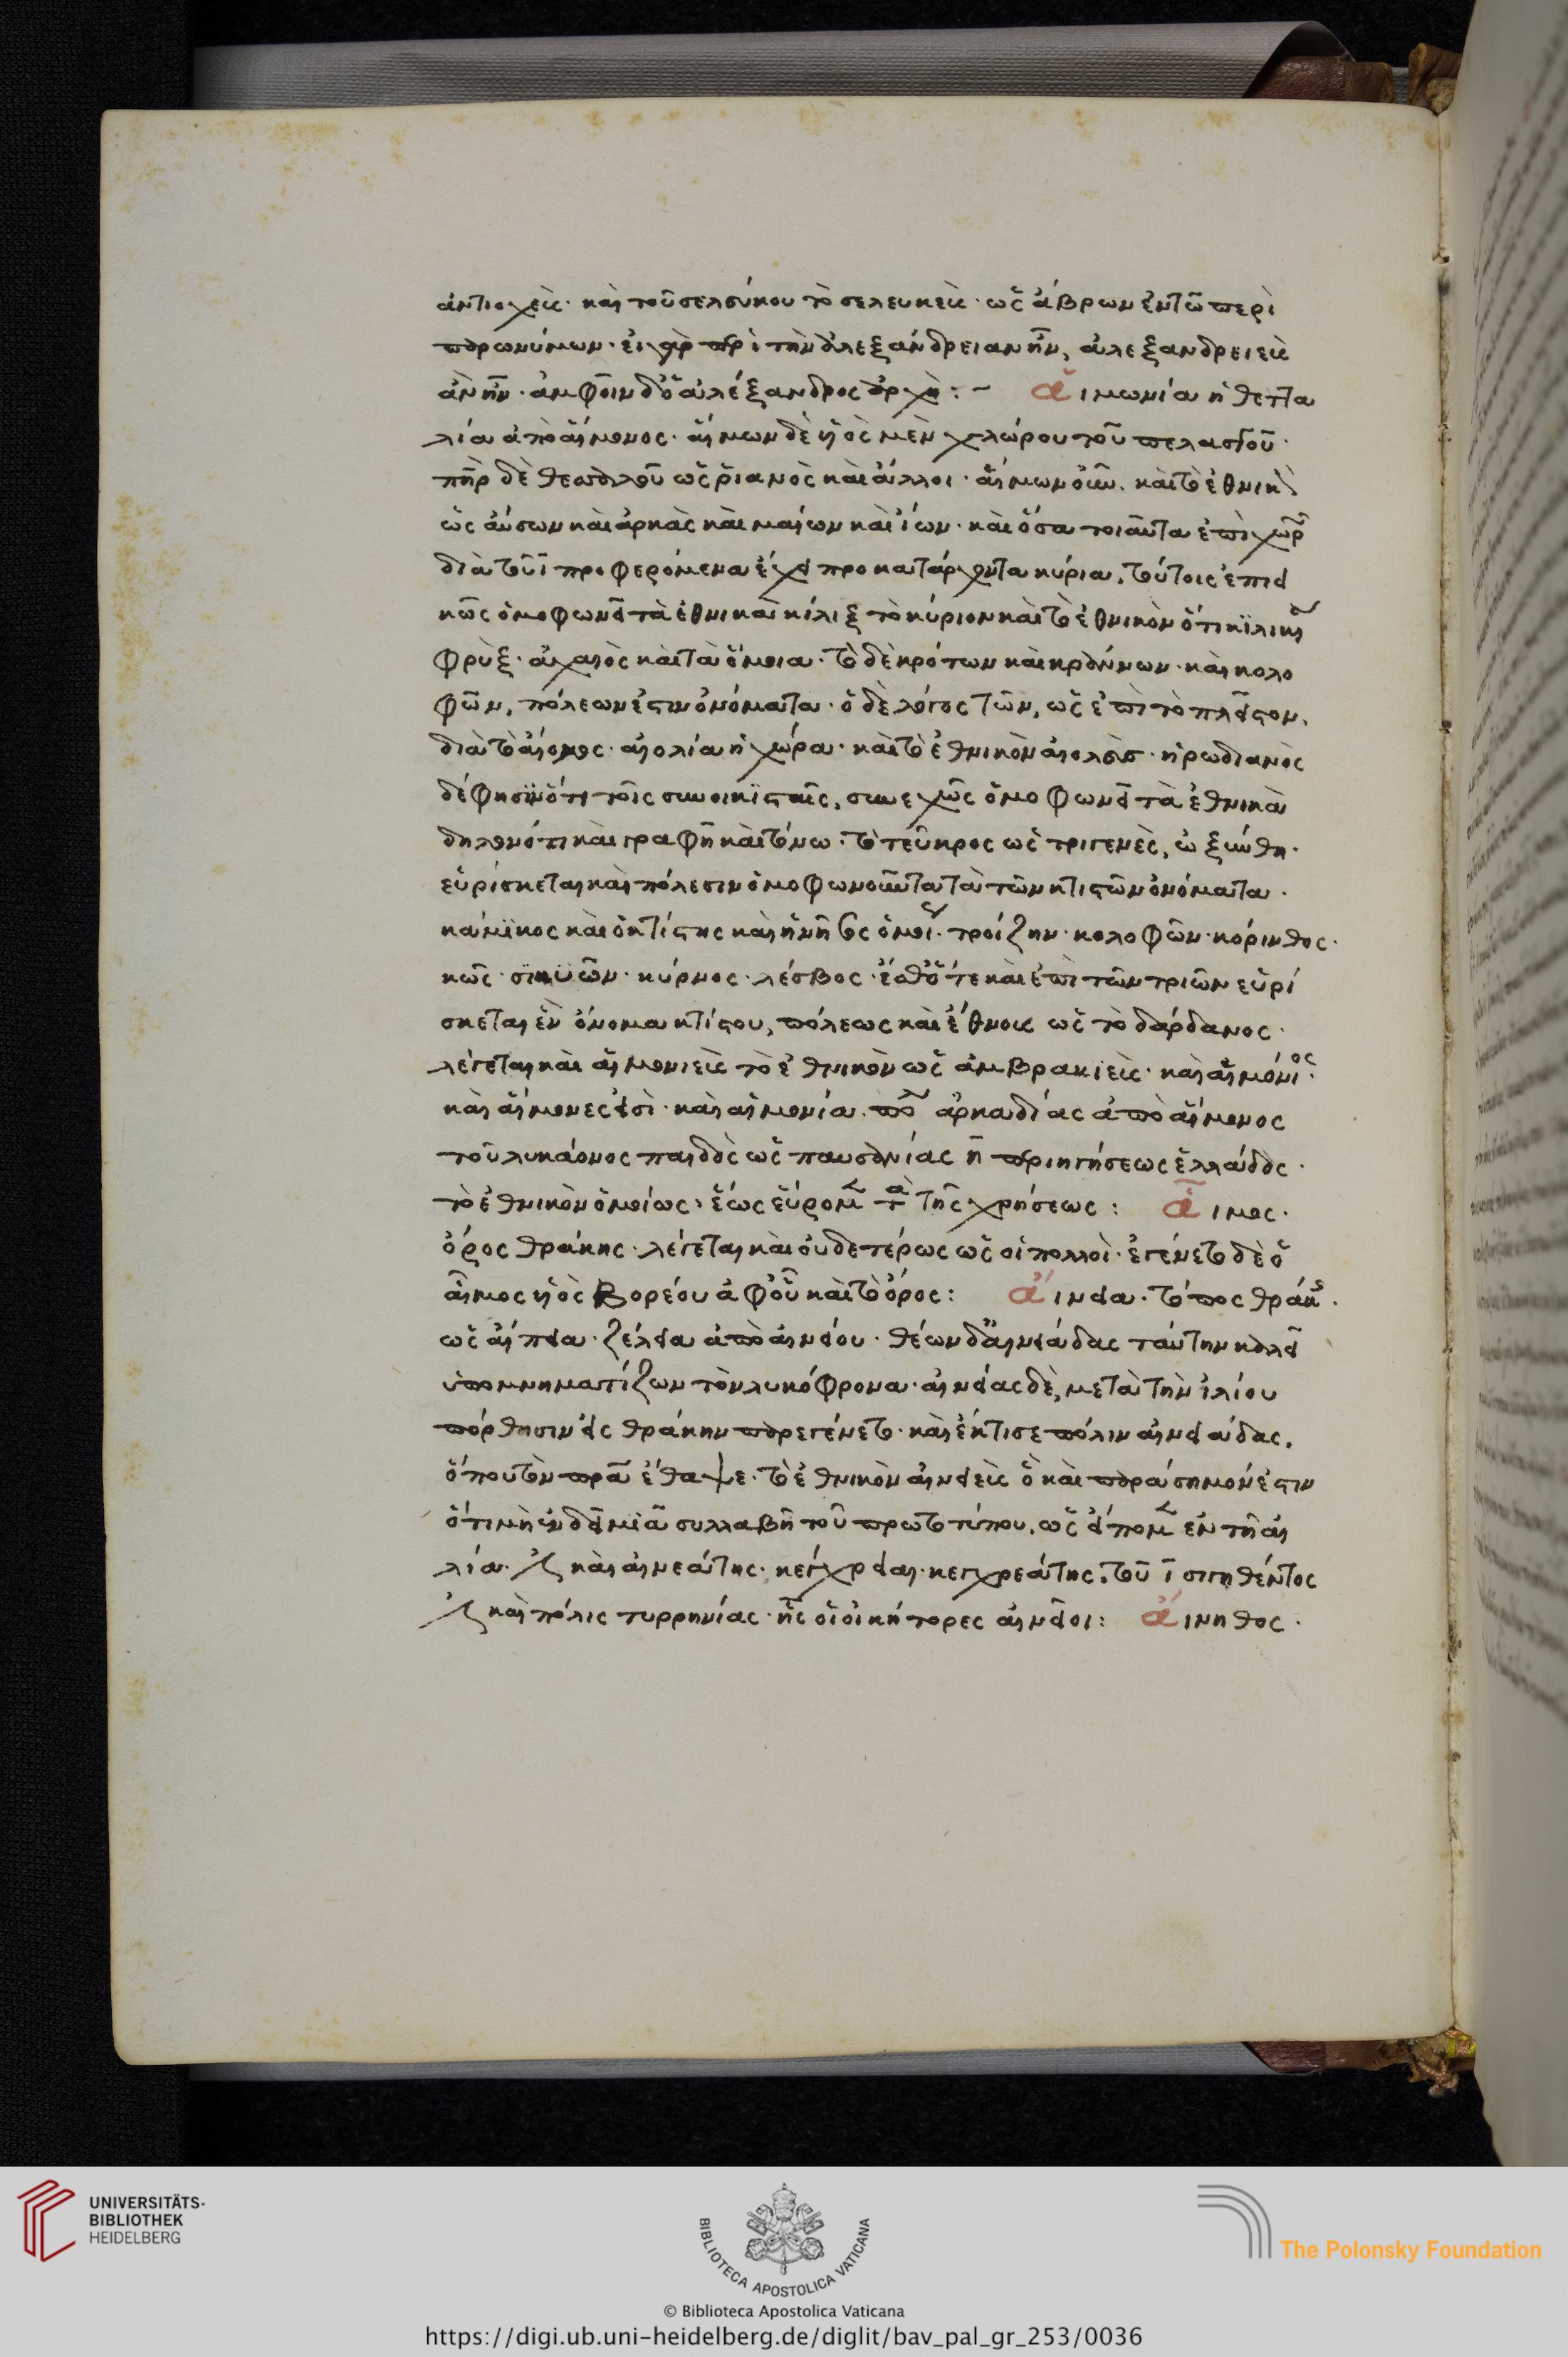 ἀντιοχεὺς· καὶ τοῦ σελεύκου τὸ σελευκεὺς· ὡς ἅβρων ἐν τῶ περὶ
παρωνύμων· εἰ γὰρ περὶ τὴν ἀλεξάνδρειαν ἦν, ἀλεξανδρειεὺς
ἂν ἦν· ἀμφοῖν δ᾽ ὁ ἀλέξανδρος ἀρχή:– αἱμωνία ἡ θεττα
λία ἀπὸ αἵμονος· αἵμων δὲ υἱὸς μὲν χλώρου τοῦ πελασγοῦ·
πὴρ δὲ θεσσαλοῦ ὡς ῥιανὸς καὶ ἄλλοι· αἵμων οὖν. καὶ τὸ ἐθνικὸ
ὡς αὔσων καὶ ἀρκὰς καὶ μαίων καὶ ἴων· καὶ ὅσα τοιαῦτα ἐπιχωρ
διὰ τοῦ ι προφερόμενα ἔχει προκατάρχοντα κύρια. τούτοις ἐπιει
κῶς ὁμοφωνεῖ τὰ ἐθνικὰ κίλιξ τὸ κύριον καὶ τὸ ἐθνικὸν ὅτι κίλικ
φρὺξ· ἀχαιὸς καὶ τὰ ὅμοια· τὸ δὲ κρότων καὶ κραννων· καὶ κολο
φῶν, πόλεών ἐστιν ὀνόματα· ὁ δὲ λόγος τῶν, ὡς ἐπὶ τὸ πλεῖστον.
διὰ τὸ αἴολος· αἰολία ἡ χώρα· καὶ τὸ ἐθνικὸν αἰολεὺς· ἡρωδιανὸς
δέ φησιν ὅτι τοῖς συνοικισταῖς, συνεχῶς ὁμοφωνεῖ τὰ ἐθνικὰ
δηλονότι καὶ γραφῆ καὶ τόνω· τὸ τεῦκρος ὡς τριγενὲς, ὠξύνθη·
εὑρίσκεται καὶ πόλεσιν ὁμοφωνοῦντα τὰ τῶν κτιστῶν ὀνόματα·
κάμικος καὶ ὁ κτίστης καὶ ἡ νῆσος ὁμοί· τροίζην· κολοφῶν· κόρινθος·
κῶς· σικυῶν· κύρνος· λέσβος· ἔσθ᾽ ὅτε καὶ ἐπὶ τῶν τριῶν εὑρί
σκεται ἓν ὄνομα κτίστου, πόλεως καὶ ἔθνους ὡς τὸ δάρδανος·
λέγεται καὶ αἱμονιεὺς τὸ ἐθνικὸν ὡς ἀμβρακιεὺς· καὶ αἱμόνιος·
καὶ αἵμονες εἰσὶ· καὶ αἱμονία. πο ἀρκαδίας ἀπὸ αἵμονος
τοῦ λυκάονος παιδὸς ὡς παυσανίας η περιηγήσεως ἑλλάδος·
τὸ ἐθνικὸν ὁμοίως· ἕως εὕρομ τὰ τῆς χρήσεως: αἷμος·
ὄρος θράκης· λέγεται καὶ οὐδετέρως ὡς οἱ πολλοὶ· ἐγένετο δὲ ὁ
αἷμος υἱὸς βορέου ἀφ᾽ οὗ καὶ τὸ ὄρος: αἴνεια· τόπος θράκ·
ὡς αἴπεια· ζέλεια ἀπὸ αἰνείου· θέων δ᾽ αἰνειάδας ταύτην καλεῖ
ὑπομνηματίζων τὸν λυκόφρονα· αἰνείας δὲ, μετὰ τὴν ἰλίου
πόρθησιν εἰς θράκην παρεγένετο· καὶ ἔκτισε πόλιν αἰνειάδας.
ὅπου τὸν πρα ἔθαψε· τὸ ἐθνικὸν αἰνειεὺς ὃ καὶ παράσημόν ἐστιν
ὅτι μὴ ἐνδεῖ μιᾶ συλλαβῆ τοῦ πρωτοτύπου, ὡς εἴπομ ἐν τῆ αἰ
λία· καὶ αἰνεάτης· κεγχρειαι· κεγχρεάτης. τοῦ ι σιγηθέντος
καὶ πόλις τυρρηνίας· ἧς οἱ οἰκήτορες αἰνεῖοι: αἴνηθος·
UNIVERSITÄTS-
BIBLIOTHEK
HEIDELBERG
BIBLIOTECA APOSTOLICA VATICANA
The Polonsky Foundation
© Biblioteca Apostolica Vaticana
https://digi.ub.uni-heidelberg.de/diglit/bav_pal_gr_253/0036